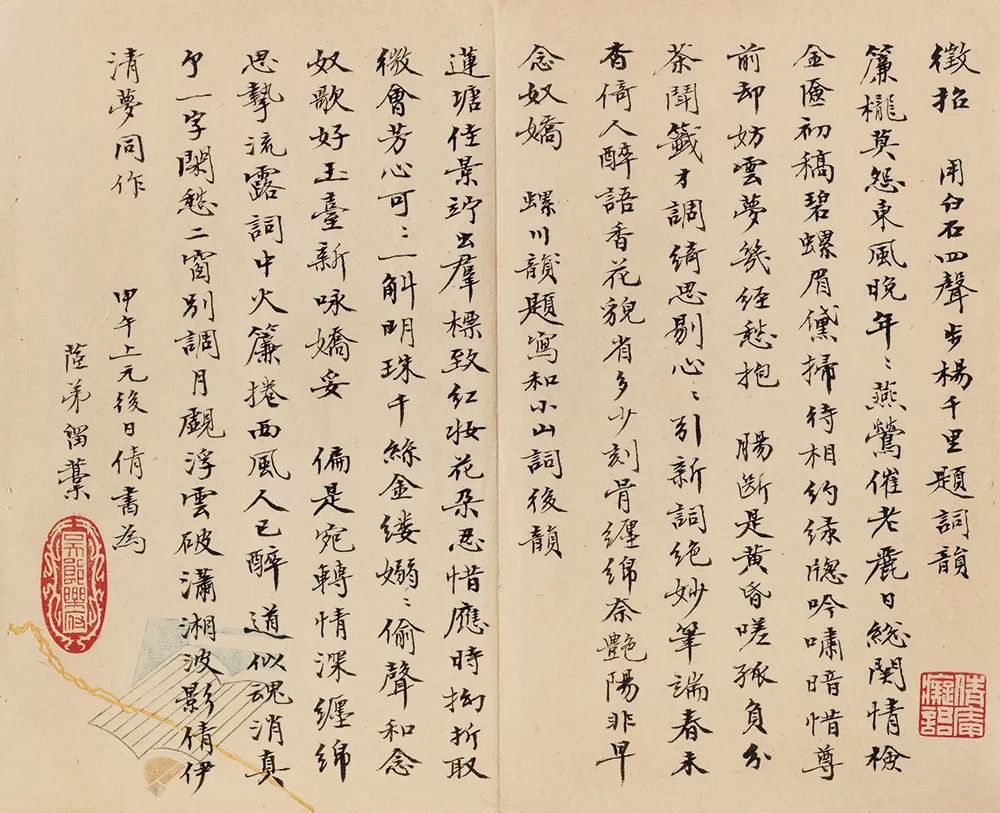 徵招　用白石四聲步楊千里題詞韻
簾櫳莫怨東風晚年〻燕鶯催老麗日總関情檢
金匳初稿碧螺眉黛掃待相約緑牕吟嘯暗惜尊
前却妨雲夢幾經愁抱　腸斷是黄昏嗟孤負分
茶鬭籤才調綺思剔心〻引新詞絶妙筆端春未
杳倚人醉語香花貌省多少刻骨纒綿奈艷陽非早
念奴嬌　螺川韻題寫和小山詞後韻
蓮塘佳景竚出羣標致紅妝花朵忍惜應時拗折取
微會芳心可〻一斛明珠千絲金縷嫋〻偷聲和念
奴歌好玉臺新咏嬌妥　偏是宛轉情深纒綿
思摯流露詞中火簾捲西風人已醉道似魂消真
个一字閑愁二窗别調月覷浮雲破瀟湘波影倩伊
清夢同作
甲午上元後日倩書為
蓙弟留葉
倩庵
癡語
吳興樂府